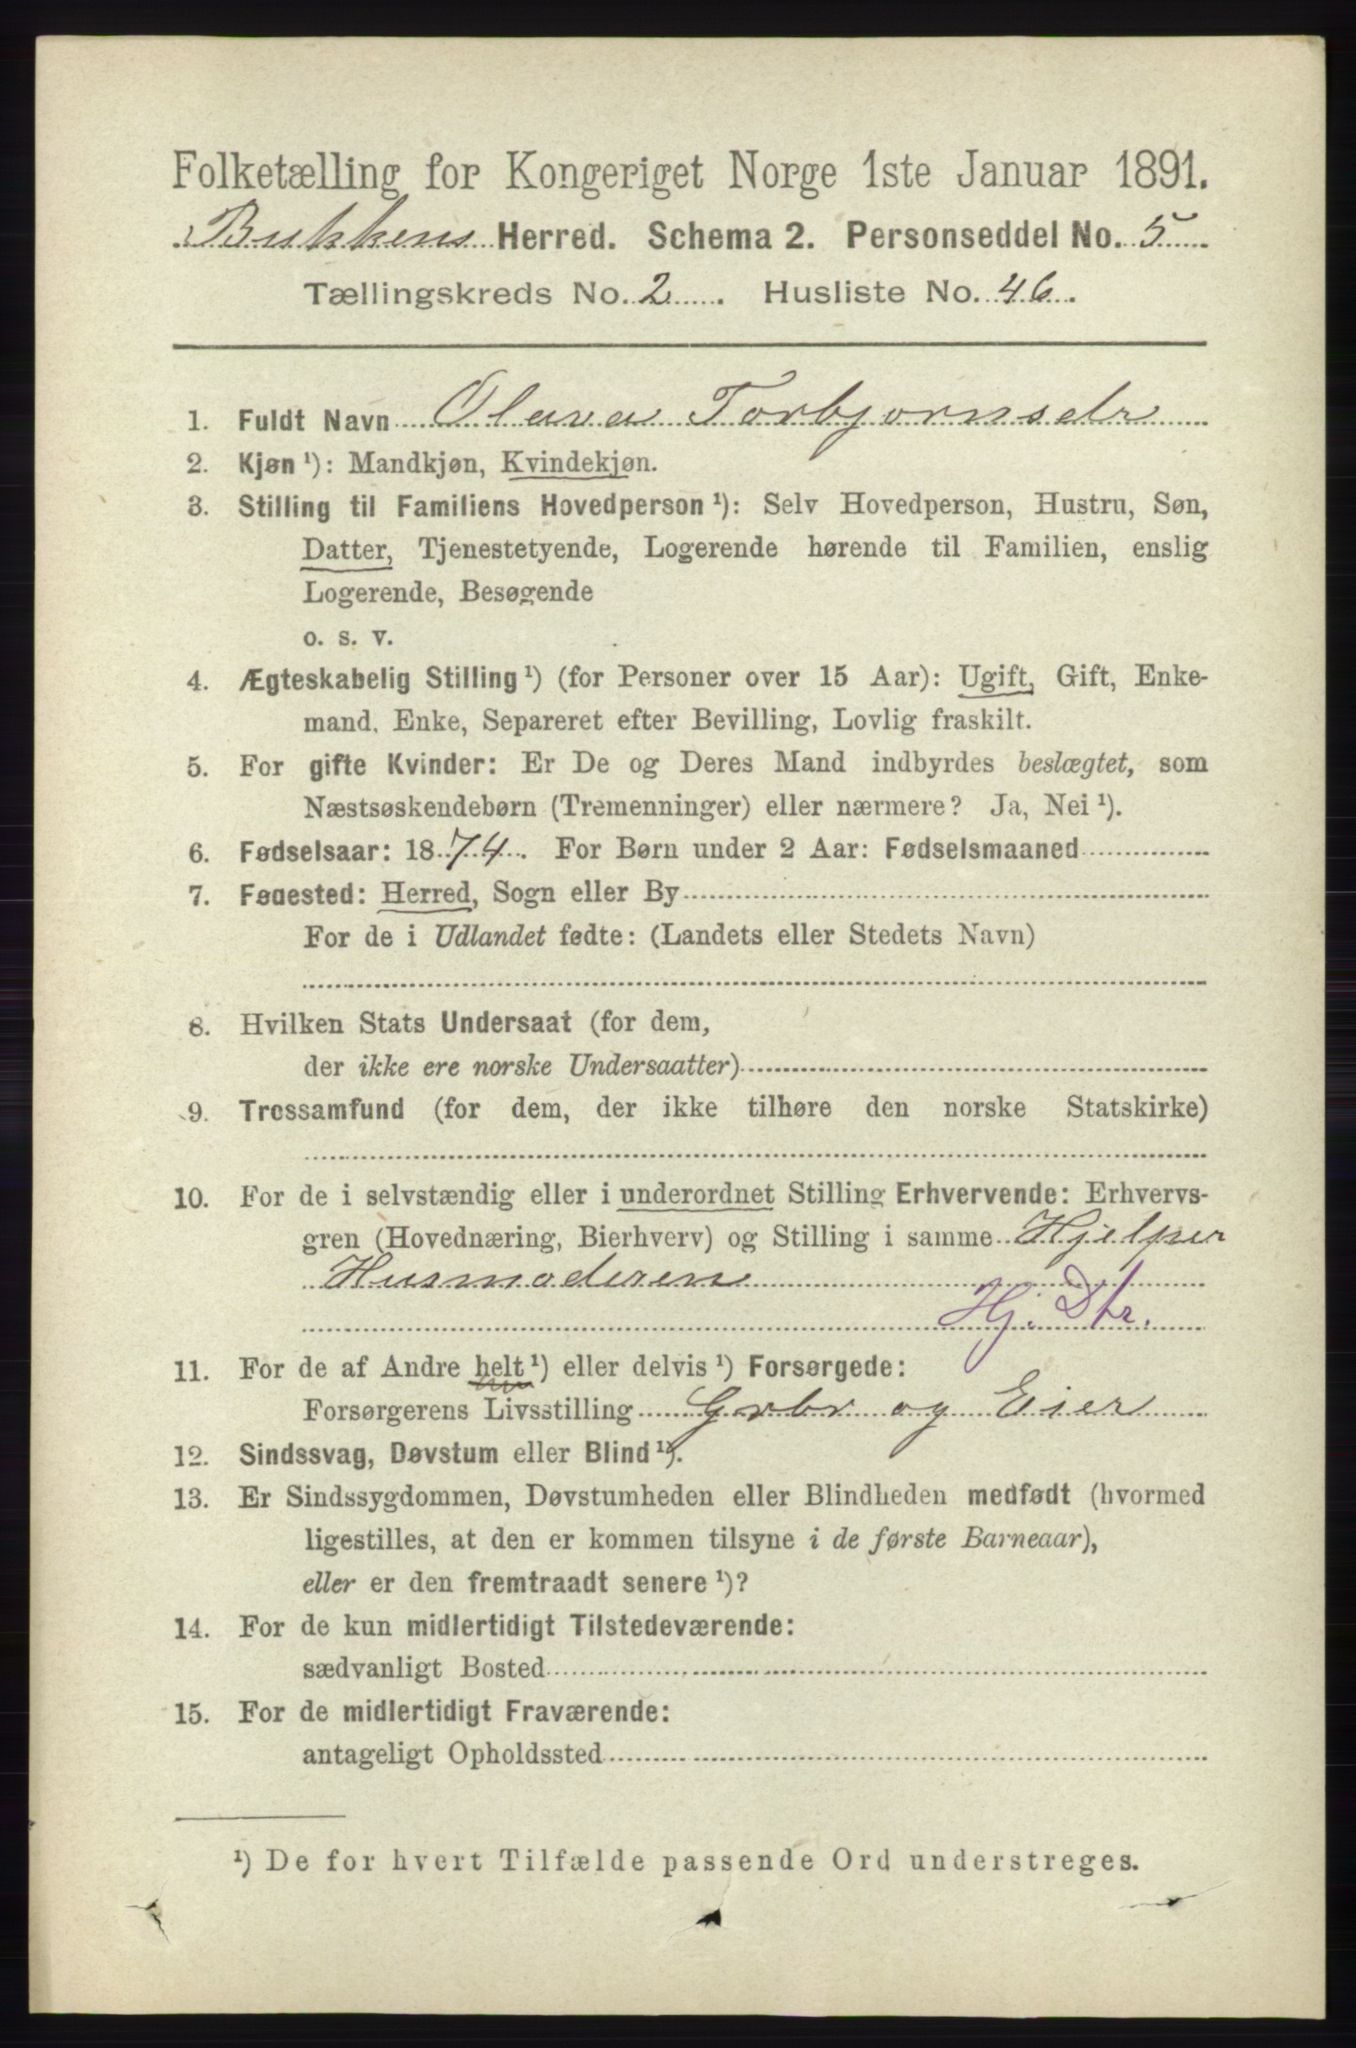 Folketælling for Kongeriget Norge 1ste Januar 1891.
Bukkens Herred. Schema 2. Personseddel No. 5
Tællingskreds No. 2. Husliste No. 46.
1. Fuldt Navn Olava Torbjørnsdr
2. Kjøn ¹): Mandkjøn, Kvindekjøn.
3. Stilling til Familiens Hovedperson ¹): Selv Hovedperson, Hustru, Søn,
Datter, Tjenestetyende, Logerende hørende til Familien, enslig
Logerende, Besøgende
o. s. v.
4. Ægteskabelig Stilling ¹) (for Personer over 15 Aar): Ugift, Gift, Enke-
mand, Enke, Separeret efter Bevilling, Lovlig fraskilt.
5. For gifte Kvinder: Er De og Deres Mand indbyrdes beslægtet, som
Næstsøskendebørn (Tremenninger) eller nærmere? Ja, Nei ¹).
6. Fødselsaar: 1874. For Børn under 2 Aar: Fødselsmaaned
7. Fødested: Herred, Sogn eller By
For de i Udlandet fødte: (Landets eller Stedets Navn)
8. Hvilken Stats Undersaat (for dem,
der ikke ere norske Undersaatter)
9. Trossamfund (for dem, der ikke tilhøre den norske Statskirke)
10. For de i selvstændig eller i underordnet Stilling Erhvervende: Erhvervs-
gren (Hovednæring, Bierhverv) og Stilling i samme Hjelper
Husmoderen
Hj. Dtr.
11. For de af Andre helt ¹) eller delvis ¹) Forsørgede:
Forsørgerens Livsstilling Grbr og Eier
12. Sindssvag, Døvstum eller Blind ¹).
13. Er Sindssygdommen, Døvstumheden eller Blindheden medfødt (hvormed
ligestilles, at den er kommen tilsyne i de første Barneaar),
eller er den fremtraadt senere ¹)?
14. For de kun midlertidigt Tilstedeværende:
sædvanligt Bosted
15. For de midlertidigt Fraværende:
antageligt Opholdssted
¹) De for hvert Tilfælde passende Ord understreges.